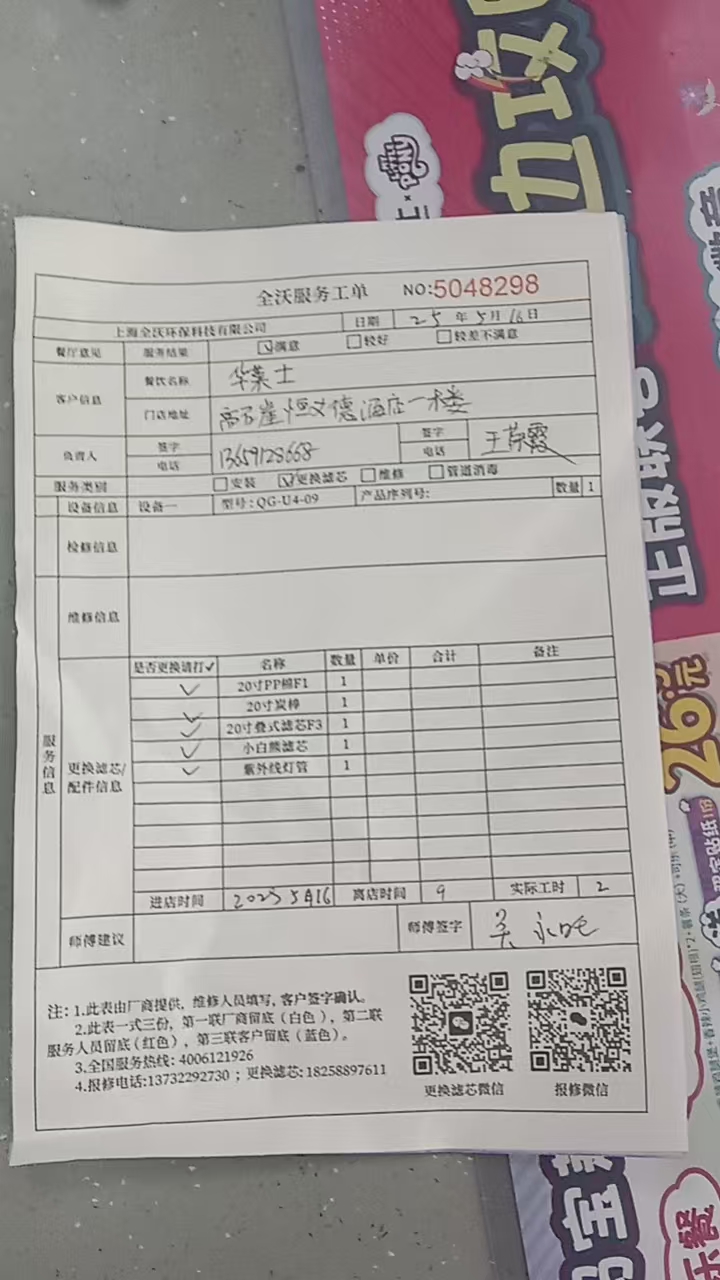 力攻
正版联名
26.9元
全沃服务工单 NO:5048298
上海全沃环保科技有限公司 日期 25 年 5 月 16 日
餐厅意见 服务结果 ☑满意 □较好 □较差不满意
客户信息 餐饮名称 华莱士
门店地址 高石崖恒义德酒店一楼
负责人 签字 签字 王荣霞
电话 13659128668 电话
服务类别 □安装 ☑更换滤芯 □维修 □管道消毒
设备信息 设备一 型号:QG-U4-09 产品序列号: 数量 1
检修信息
维修信息
服务信息
更换滤芯/
配件信息
是否更换请打✓ 名称 数量 单价 合计 备注
✓ 20寸PP棉F1 1
✓ 20寸炭棒 1
✓ 20寸叠式滤芯F3 1
✓ 小白熊滤芯 1
✓ 紫外线灯管 1
进店时间 2025 5月16 离店时间 9 实际工时 2
师傅建议 师傅签字
注: 1.此表由厂商提供, 维修人员填写, 客户签字确认。
2.此表一式三份, 第一联厂商留底(白色), 第二联
服务人员留底(红色), 第三联客户留底(蓝色)。
3.全国服务热线: 4006121926
4.报修电话:13732292730 ; 更换滤芯: 18258897611
更换滤芯微信 报修微信